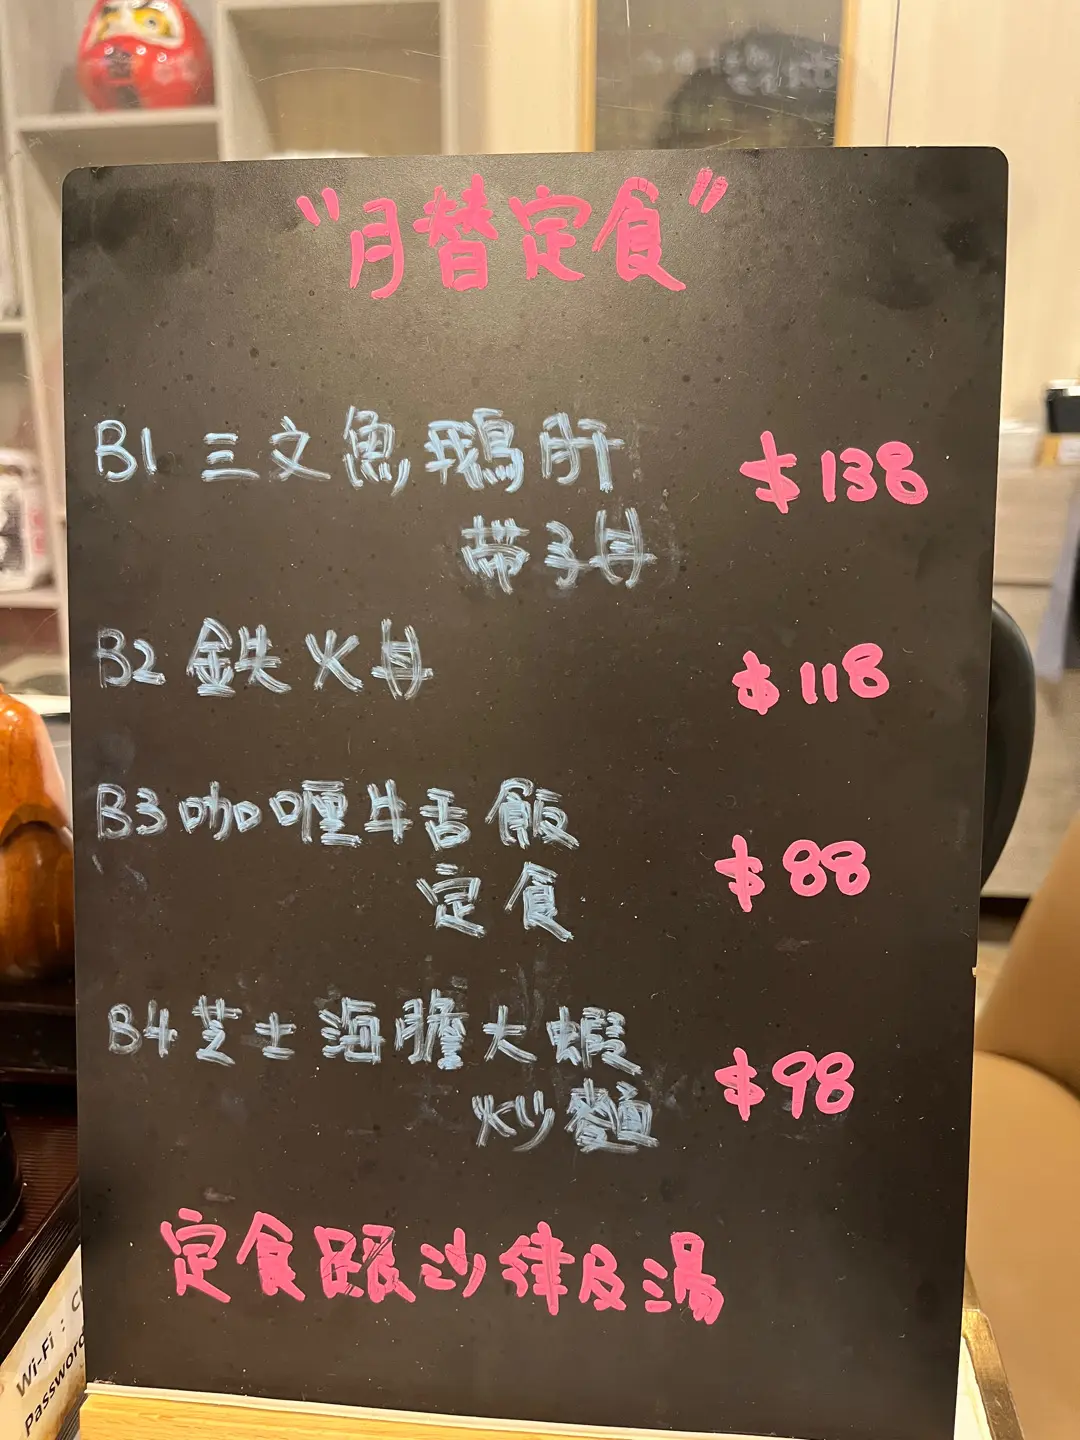 "月替定食"
B1 三文魚鵝肝 $138
帶子丼
B2 鉄火丼 $118
B3 咖喱牛舌飯 $88
定食
B4 芝士海膽大蝦 $98
炒麵
定食跟沙律及湯
Wi-Fi : C
Password